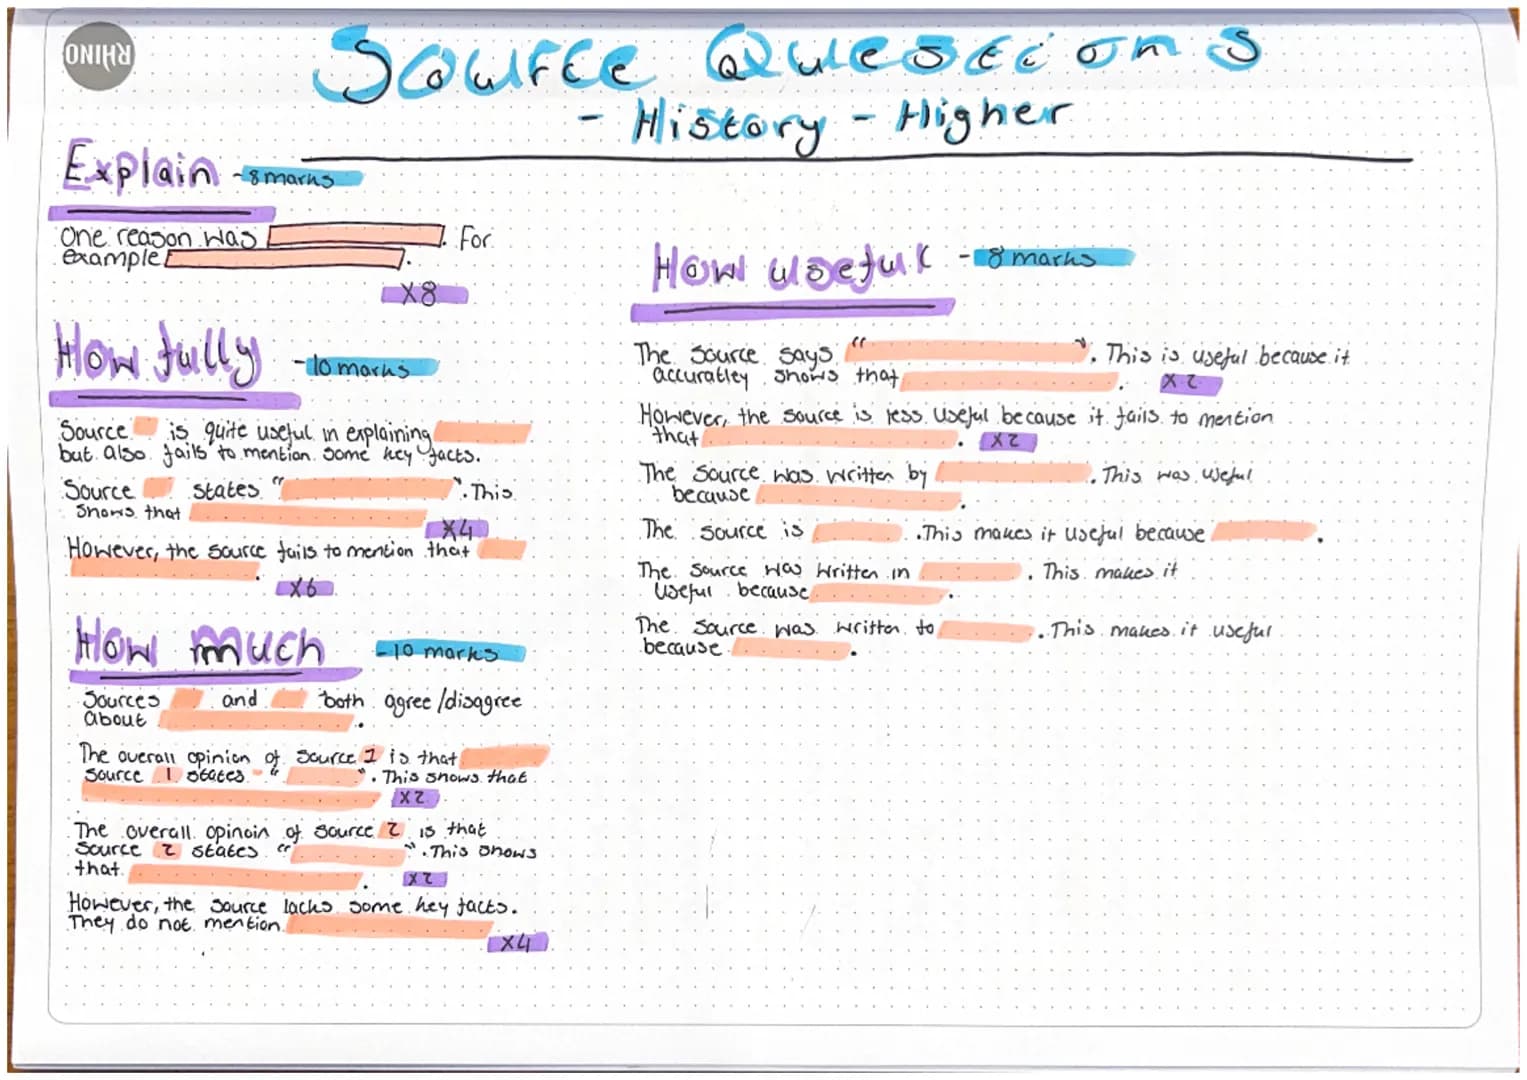 RHINO
Source Questions
- History - Higher
Explain - 8 marks
One reason was . For
example .
X8
How fully - 10 marks
Source is quite useful in explaining
but also fails to mention some key facts.
Source states " ". This
shows that
X4
However, the source fails to mention that
.
X6
How much - 10 marks
Sources and both agree/disagree
about .
The overall opinion of source 1 is that
source 1 states - " ". This shows that
X2
The overall opinoin of source 2 is that
source 2 states " ". This shows
that .
X2
However, the source lacks some key facts.
They do not mention
X4
How useful - 8 marks
The source says " ". This is useful because it
accuratley shows that . X2
However, the source is less useful because it fails to mention
that . X2
The source was written by . This was useful
because .
The source is . This makes it useful because .
The source was written in . This makes it
useful because .
The source was written to . This makes it useful
because .